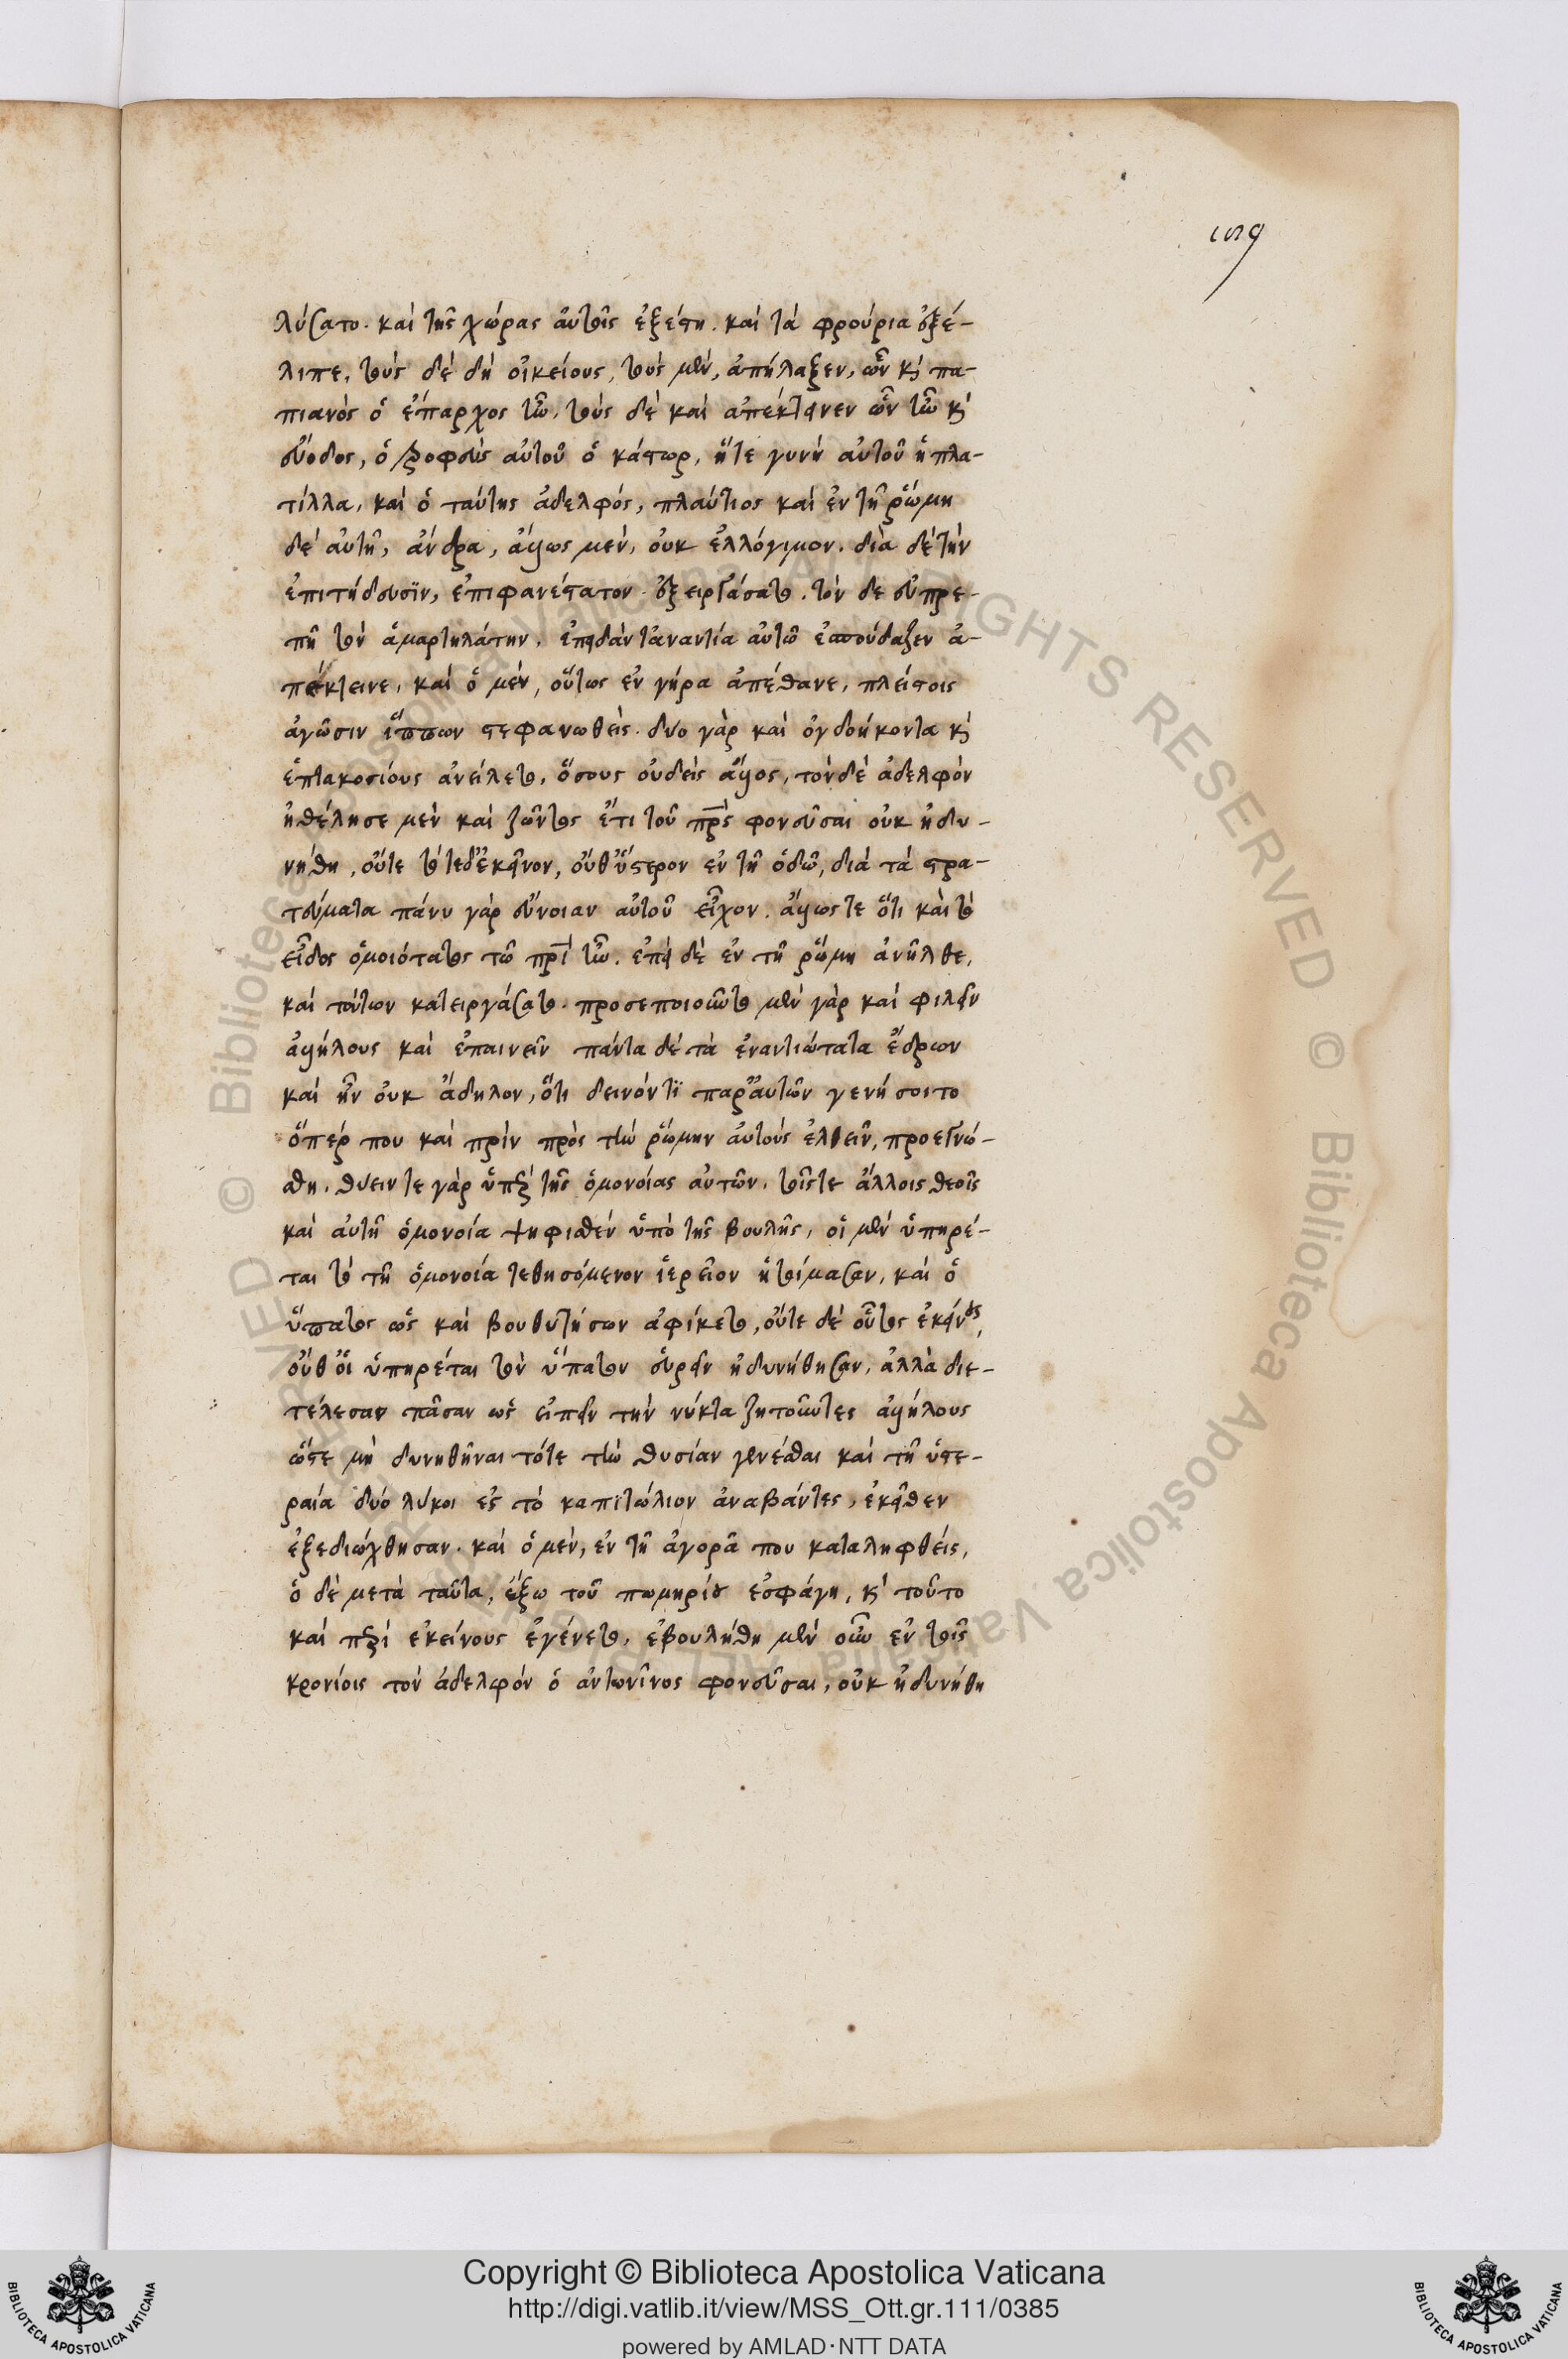 189
λύσατο. καὶ τῆς χώρας αὐτοῖς ἐξέστη. καὶ τὰ φρούρια ἐξέ-
λιπε, τοὺς δὲ δὴ οἰκείους, τοὺς μὲν, ἀπήλαξεν, ὧν κὶ πα-
πιανὸς ὁ ἔπαρχος ἦν. τοὺς δὲ καὶ ἀπέκτεινεν ὧν ἦν κὶ
εὔοδος, ὁ τροφεὺς αὐτοῦ ὁ κάστωρ, ἥτε γυνὴ αὐτοῦ ἡ πλα-
τίλλα, καὶ ὁ ταύτης ἀδελφός, πλαύτιος καὶ ἐν τῆ ῥώμη
δὲ αὐτῆ, ἄνδρα, ἄλλως μὲν, οὐκ ἐλλόγιμον. διὰ δὲ τὴν
ἐπιτήδευσϊν, ἐπιφανέστατον ἐξειργάσατο. τὸν δε εὐπρε-
πῆ τὸν ἁρματηλάτην, ἐπειδὰν τἀναντία αὐτῶ ἐσπούδαζεν ἀ-
πέκτεινε, καὶ ὁ μὲν, οὕτως ἐν γήρα ἀπέθανε, πλείστοις
ἀγῶσιν ἵππων στεφανωθεὶς. δύο γὰρ καὶ ὀγδοήκοντα κὶ
ἑπτακοσίους ἀνείλετο, ὅσους οὐδεὶς ἄλλος, τὸν δὲ ἀδελφὸν
ἠθέλησε μὲν καὶ ζῶντος ἔτι τοῦ πρς φονεῦσαι οὐκ ἠδυ-
νήθη, οὔτε τότε δ' ἐκεῖνον, οὔθ' ὕστερον ἐν τῆ ὁδῶ, διὰ τὰ στρα-
τεύματα πάνυ γὰρ εὔνοιαν αὐτοῦ εἶχον. ἄλλως τε ὅτι καὶ τὸ
εἶδος ὁμοιότατος τῶ πρι ἦν. ἐπεὶ δὲ ἐν τῆ ῥώμη ἀνῆλθε,
καὶ τοῦτον κατειργάσατο. προσεποιοῦντο μὲν γὰρ καὶ φιλεῖν
ἀλλήλους καὶ ἐπαινεῖν πάντα δὲ τὰ ἐναντιώτατα ἔδρων
καὶ ἦν οὐκ ἄδηλον, ὅτι δεινόν τϊ παρ' αὐτῶν γενήσοιτο
ὅπερ που καὶ πρὶν πρὸς τὴν ῥώμην αὐτοὺς ἐλθεῖν, προεγνώ-
σθη. θύειν τε γὰρ ὑπὲρ τῆς ὁμονοίας αὐτῶν. τοῖς τε ἄλλοις θεοῖς
καὶ αὐτῆ ὁμονοία ψηφισθὲν ὑπὸ τῆς βουλῆς, οἱ μὲν ὑπηρέ-
ται τὸ τῆ ὁμονοία τεθησόμενον ἱερεῖον ἡτοίμασαν, καὶ ὁ
ὕπατος ὡς καὶ βουθυτήσων ἀφίκετο, οὔτε δὲ οὗτος ἐκείνους,
οὔθ' οἱ ὑπηρέται τὸν ὕπατον εὑρεῖν ἠδυνήθησαν, ἀλλὰ διε-
τέλεσαν πᾶσαν ὡς εἰπεῖν τὴν νύκτα ζητοῦντες ἀλλήλους
ὥστε μὴ δυνηθῆναι τότε τὴν θυσίαν γενέσθαι καὶ τῆ ὑστε-
ραία δύο λύκοι ἐς τὸ καπϊτώλιον ἀναβάντες, ἐκεῖθεν
ἐξεδιώχθησαν. καὶ ὁ μὲν, ἐν τῆ ἀγορᾶ που καταληφθείς,
ὁ δὲ μετὰ ταῦτα, ἔξω τοῦ πωμηρίου ἐσφάγη, κὶ τοῦτο
καὶ περὶ ἐκείνους ἐγένετο, ἐβουλήθη μὲν οὖν ἐν τοῖς
κρονίοις τὸν ἀδελφὸν ὁ ἀντωνῖνος φονεῦσαι, οὐκ ἠδυνήθη
Copyright © Biblioteca Apostolica Vaticana
http://digi.vatlib.it/view/MSS_Ott.gr.111/0385
powered by AMLAD·NTT DATA